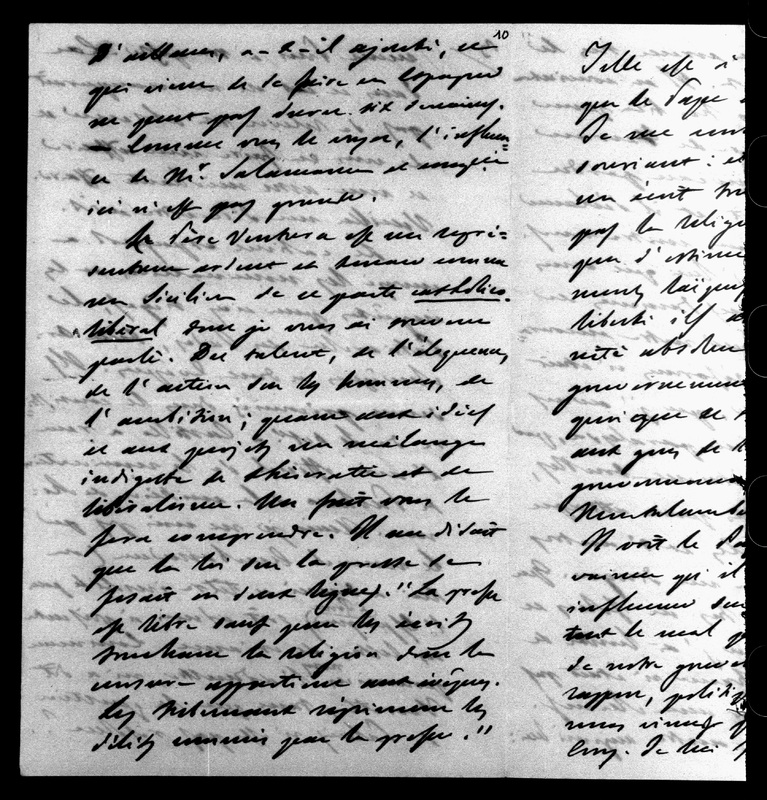 10
D'ailleurs, a-t-il ajouté, ce
qui vient de se faire en Espagne
ne peut pas durer six semaines.
— Comme vous le voyez, l'influen=
ce de Mr. Salamanca et
ici n'est pas grande.
Le Père Ventura est un repré=
sentant ardent et comme
un Sicilien de ce parti catholico-
libéral dont je vous ai souvent
parlé. Du talent, de l'éloquence,
de l'action sur les hommes, de
l'ambition; quant aux idées
et aux projets un mélange
indigeste de théocratie et de
libéralisme. Un fait vous le
fera comprendre. Il me disait
que la loi sur la presse se
ferait en deux lignes. "La presse
est libre sauf pour les écrits
touchant la religion dont la
censure appartient aux évêques.
Les tribunaux répriment les
délits commis par la presse."
Telle est
que le Pape
Je me
souriant: et
un écrit
pas la religi
peu d'estime
ments laïques
liberté ils
rité absolue
gouvernement
quoique de
aux yeux de
gouvernement
Montalembe
Il voit le
vaincu qu'il
influence sur
tout le mal
de notre gouver
rappor, politiq
nous
Cour. Je lui